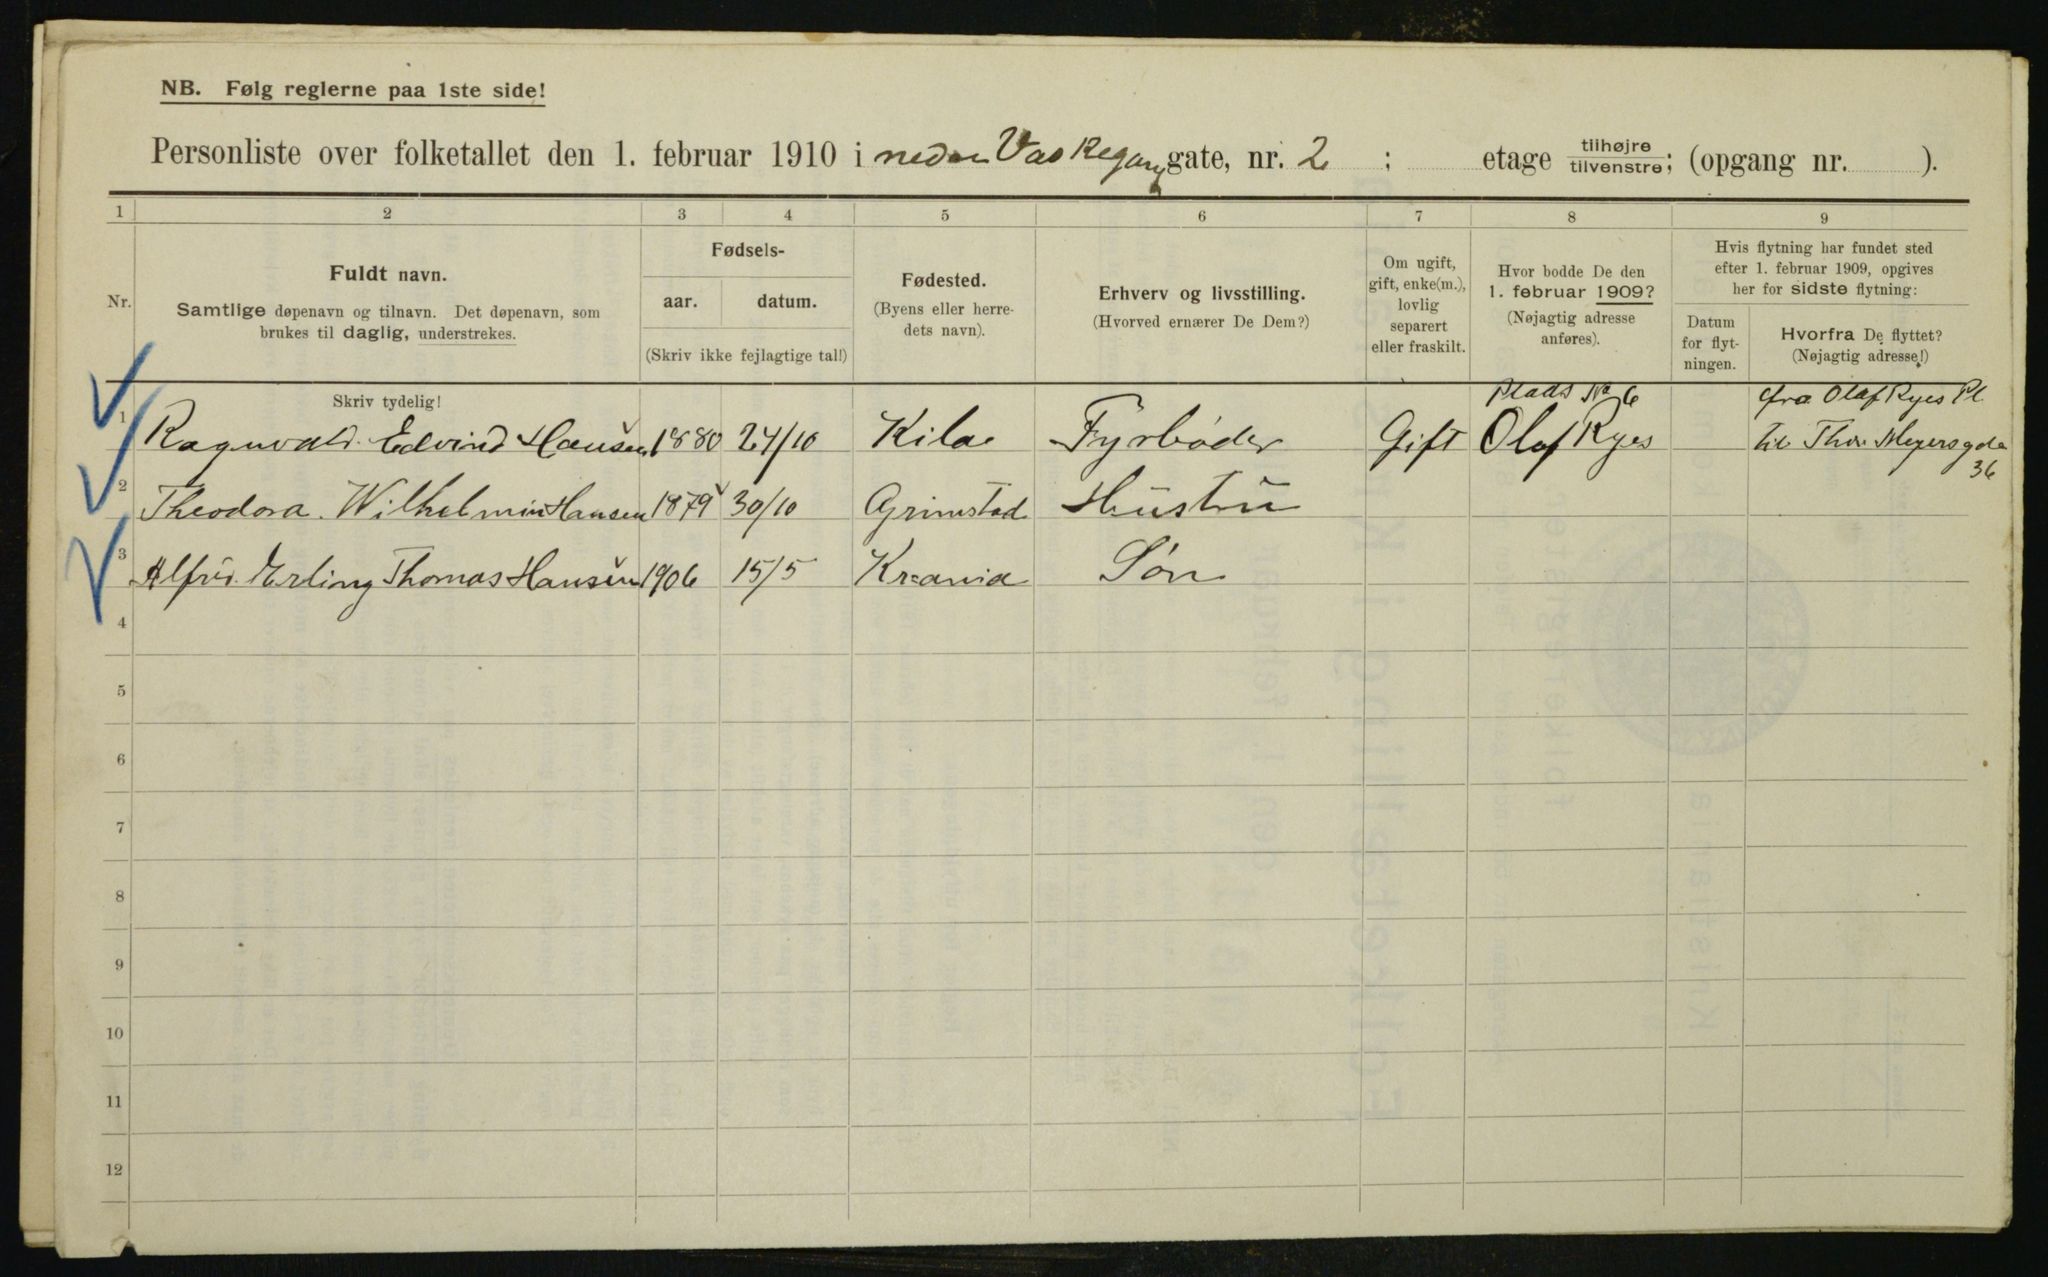 NB. Følg reglerne paa 1ste side!
Personliste over folketallet den 1. februar 1910 i neden Vaskegang gate, nr. 2 ; etage tilhøjre tilvenstre; (opgang nr. ).
1 2 3 4 5 6 7 8 9
Nr.
Fuldt navn.
Samtlige døpenavn og tilnavn. Det døpenavn, som
brukes til daglig, understrekes.
Fødsels-
aar. datum.
(Skriv ikke fejlagtige tal!)
Fødested.
(Byens eller herre-
dets navn).
Erhverv og livsstilling.
(Hvorved ernærer De Dem?)
Om ugift,
gift, enke(m.),
lovlig
separert
eller fraskilt.
Hvor bodde De den
1. februar 1909?
(Nøjagtig adresse
anføres).
Hvis flytning har fundet sted
efter 1. februar 1909, opgives
her for sidste flytning:
Datum
for flyt-
ningen.
Hvorfra De flyttet?
(Nøjagtig adresse!)
Skriv tydelig!
Plads No 6 fra Olaf Ryes Pl.
1 Ragnvald Edvind Hansen 1880 24/10 Kila Fyrbøder Gift Olaf Ryes til Thv. Meyersgde
36
2 Theodora Wilhelmin Hansen 1879 30/10 Grimstad Hustru
3 Alfrid Erling Thomas Hansen 1906 15/5 Kr=ania Søn
4
5
6
7
8
9
10
11
12